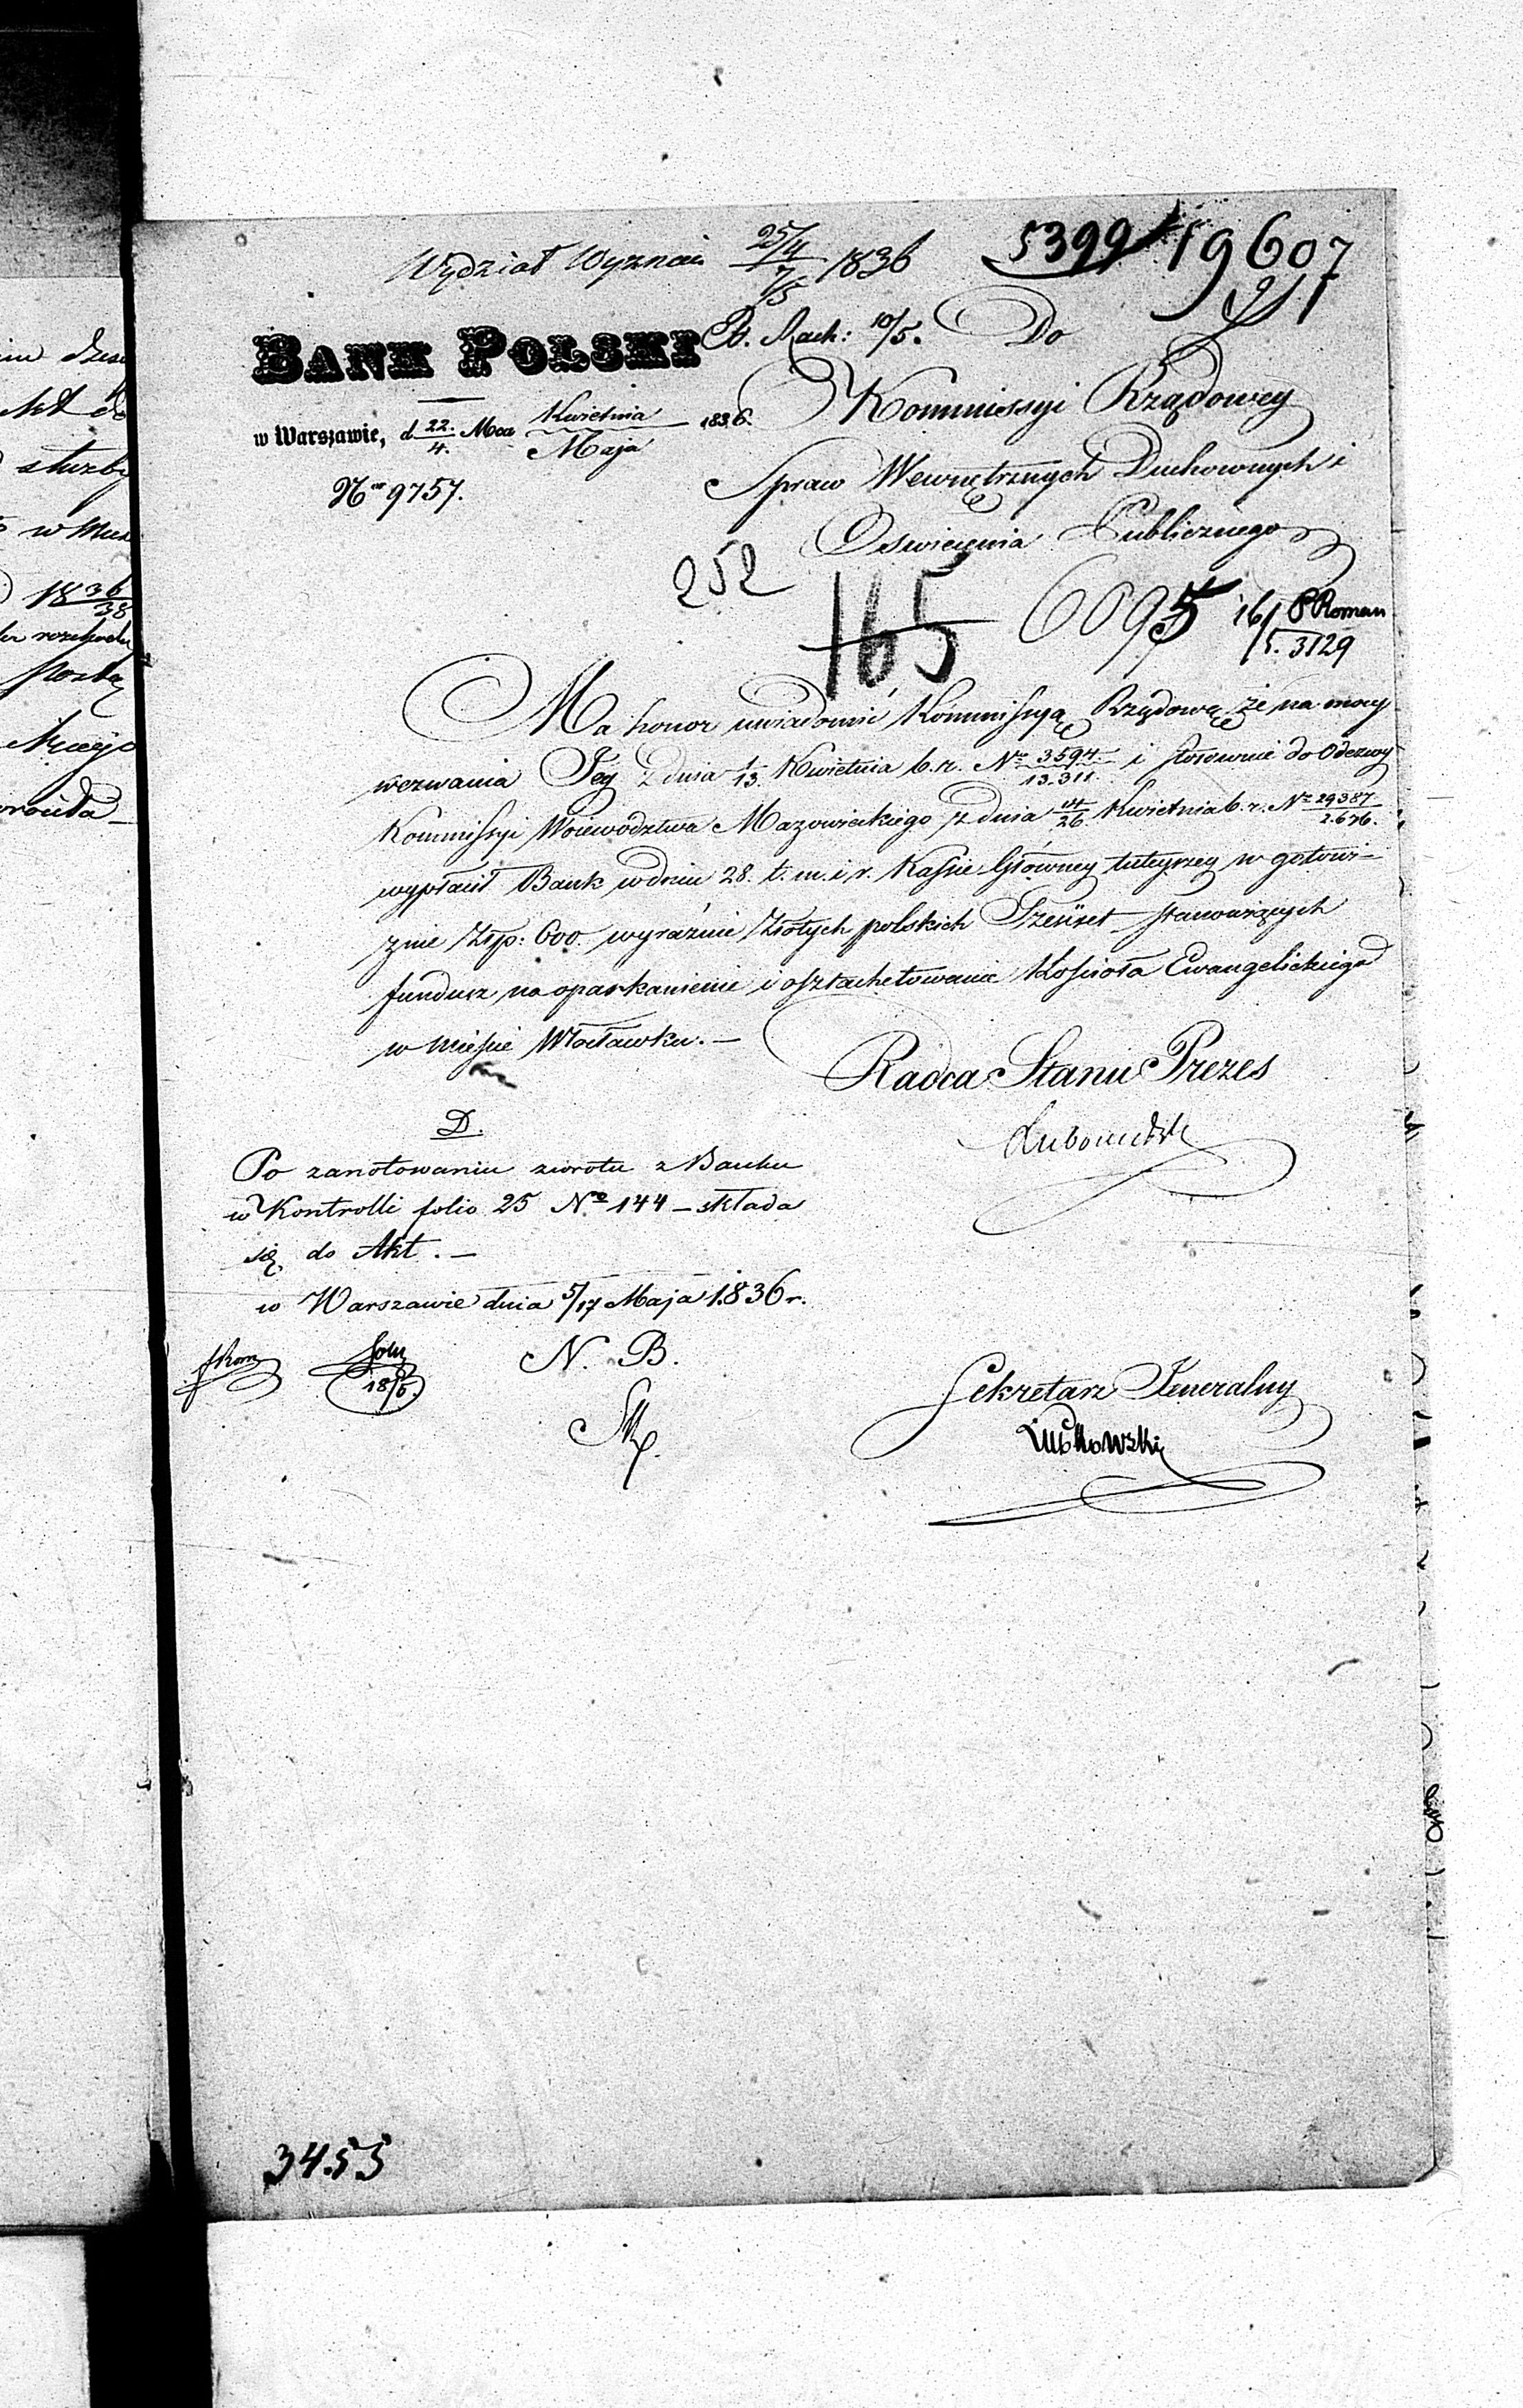 Wydział Wyznań 25/4 7/5 1836
5399 19607
BANK POLSKI
Rach: 10/5.
Do
Kommissyi Rządowey
w Warszawie, d 22./4. Mca Kwietnia/Maja 1836.
Spraw Wewnętrznych Duchownych i
Nro 9757.
Oswiecenia Publicznego
252
165
6095
16/5. P Roman
3129
Ma honor uwiadomić Kommissyą Rządową że na mocy
wezwania Jey z dnia 1/13. Kwietnia b.r. Nro 3594./13.311. i stosownie do Odezwy
Kommissyi Woiewodztwa Mazowieckiego z dnia 14/26. Kwietnia b.r. No 29387/2.676.
wypłacił Bank w dniu 28. t.m. i r. Kassie Głowney tuteyszey w gotowi-
znie Złp: 600. wyraźnie Złotych polskich Sześćset stanowiących
fundusz na oparkanienie i osztachetowanie Kościoła Ewangelickiego
w mieście Włocławku. —
Radca Stanu Prezes
Lubowidzki
D.
Po zanotowaniu zwrotu z Banku
w Kontrolli folio 25 No 144 – składa
się do Akt. —
w Warszawie dnia 5/17 Maja 1836 r.
18/5.
N. B.
Sekretarz Jeneralny
Lubkowski
3455
im
w
1836/38